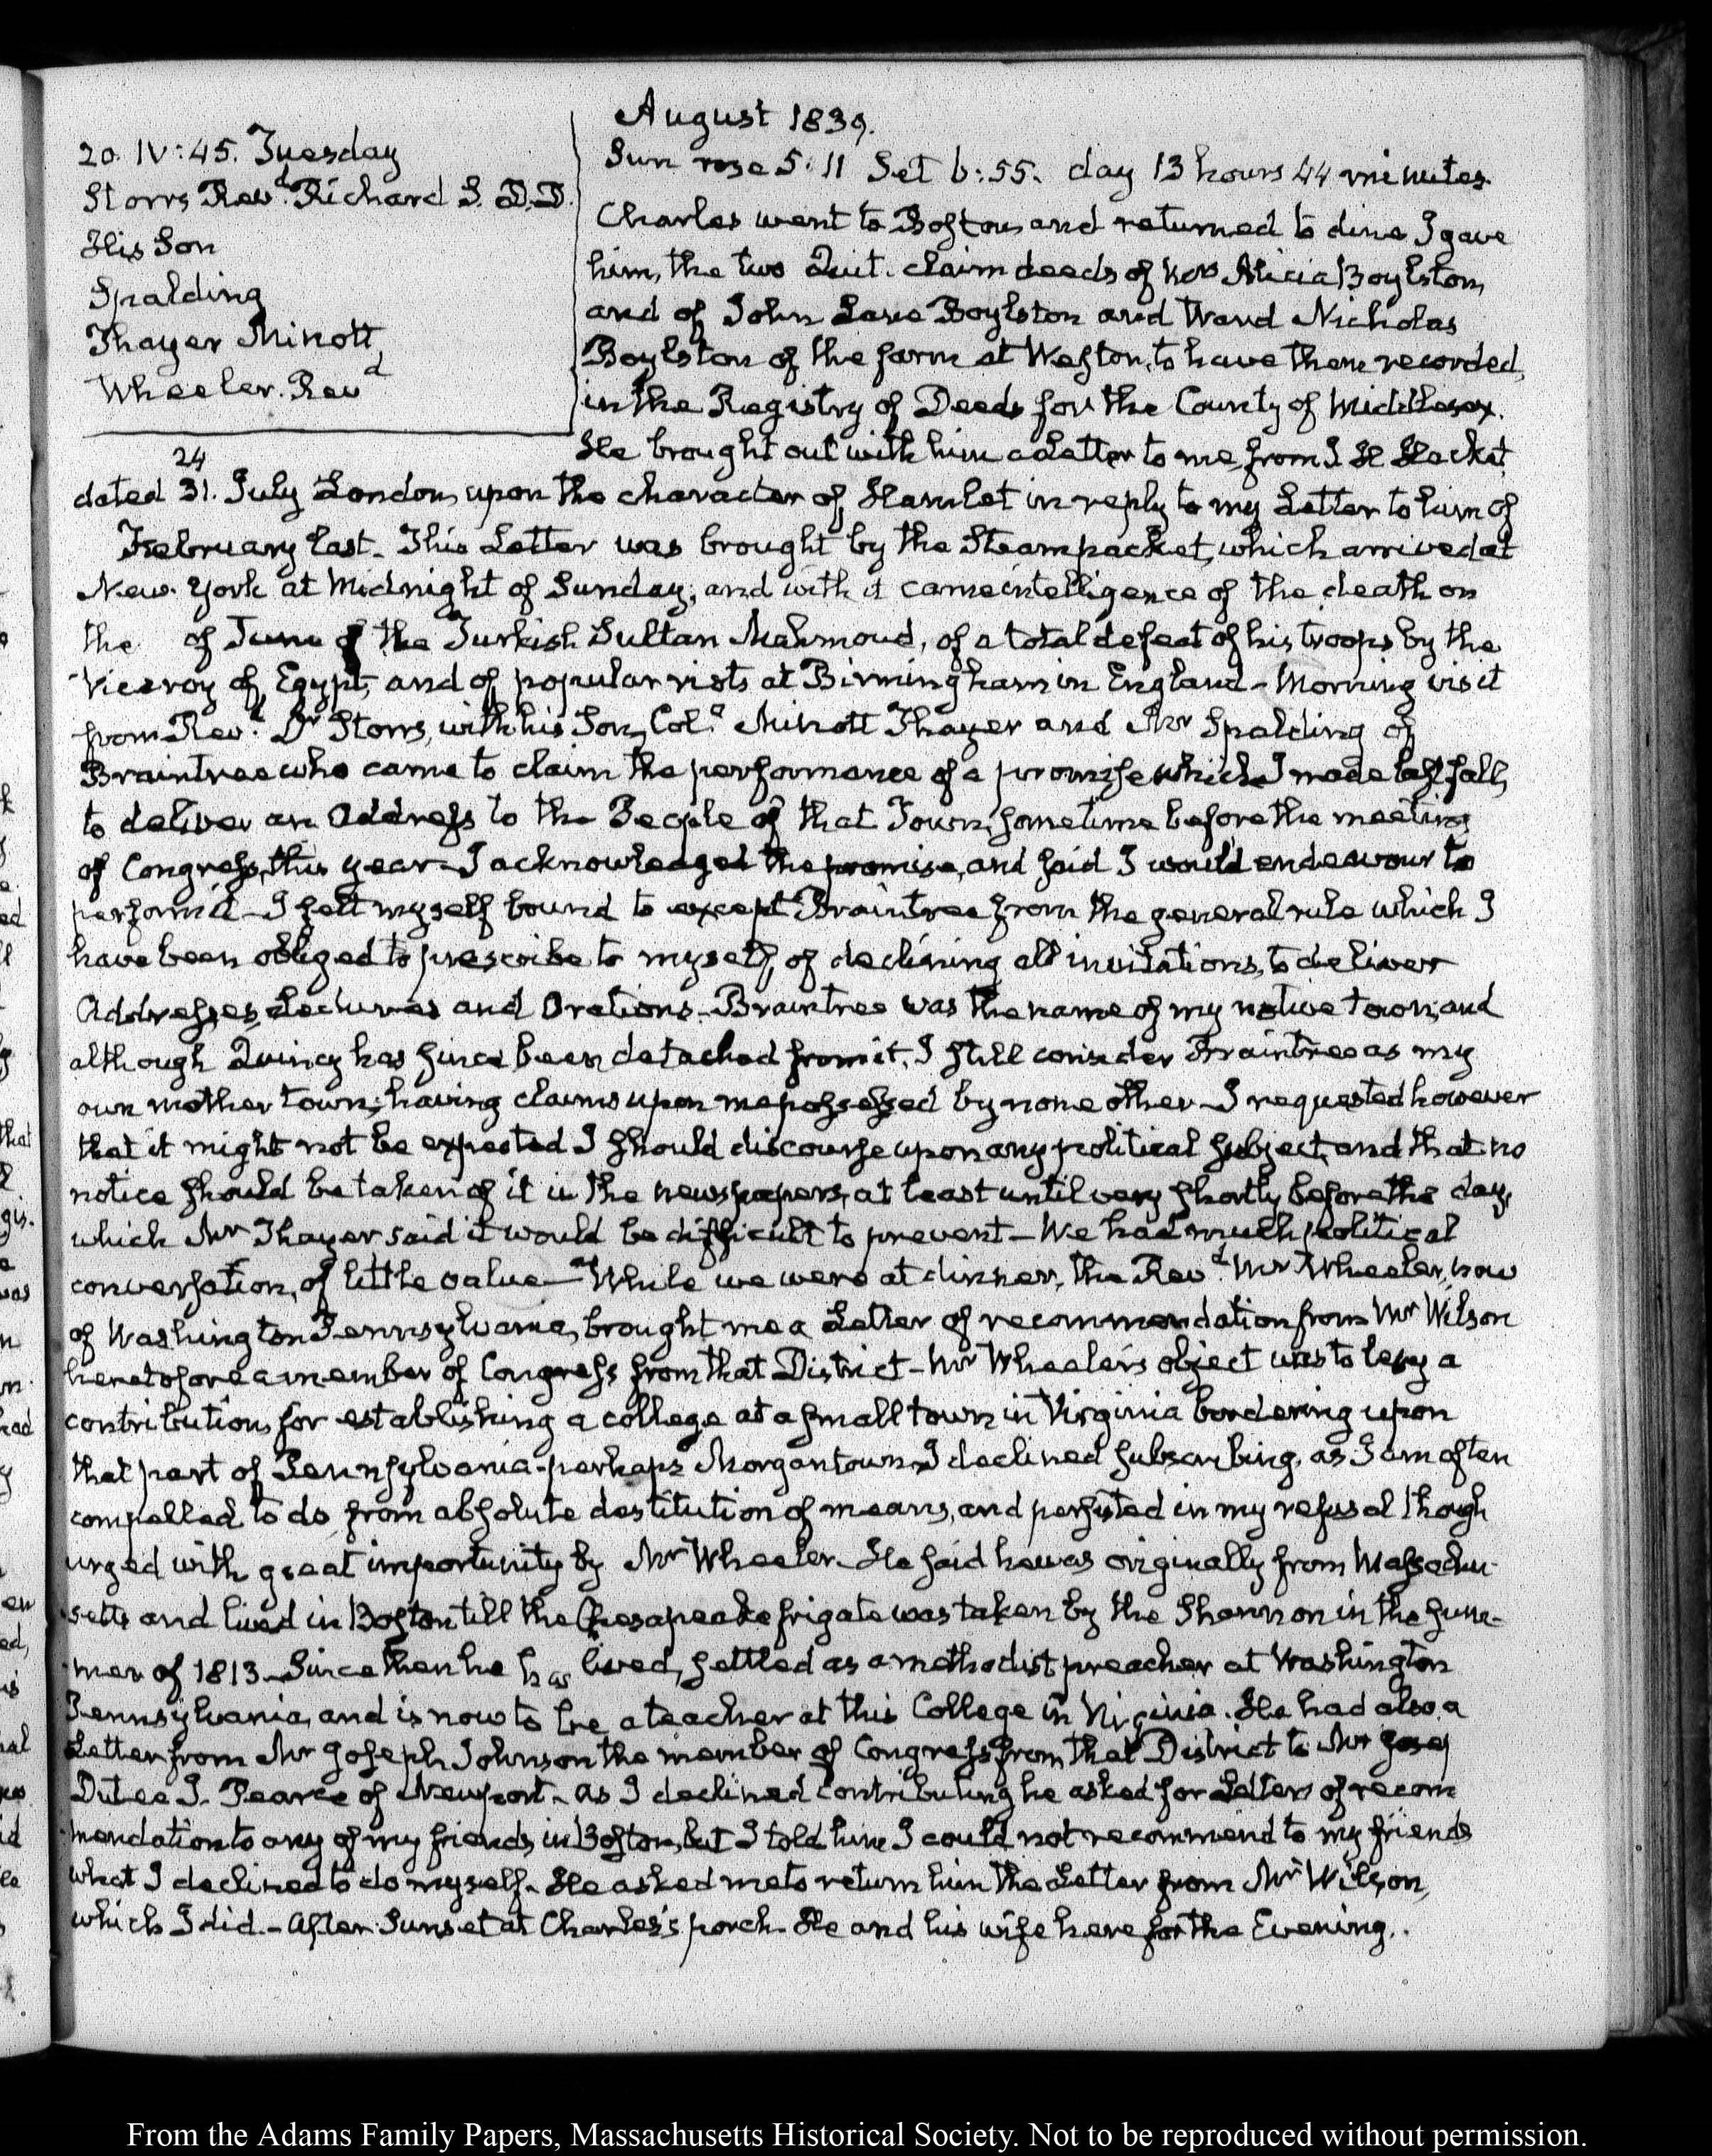 August 1839.
20. IV:45. Tuesday
Storrs Revd. Richard S. D.D.
His Son
Spalding
Thayer Minott
Wheeler. Revd
Sun rose 5:11 Set 6:55. day 13 hours 44 minutes
Charles went to Boston and returned to dine I gave
him, the two Quit. claim deeds of Alicia Boylston,
and of John Lane Boylston and Ward Nicholas
Boylston of the farm at Weston, to have them recorded,
in the Registry of Deeds for the County of Middlesex.
He brought out with him a Letter to me from J H Hacket
24
dated 31. July London, upon the character of Hamlet in reply to my Letter to him of
February last. This Letter was brought by the Steam packet, which arrived at
New. York at Midnight of Sunday; and with it came intelligence of the death on
the of June of the Turkish Sultan Mahmoud, of a total defeat of his troops by the
Viceroy of Egypt, and of popular riots at Birmingham in England – Morning visit
from Revd. Dr Storrs, with his Son, Coll. Minott Thayer and Mr Spalding of
Braintree who came to claim the performance of a promise which I made last fall,
to deliver an Address to the People of that Town, sometime before the meeting
of Congress, this year – I acknowledged the promise, and said I would endeavour to
perform it – I felt myself bound to except Braintree from the general rule which I
have been obliged to prescribe to myself, of declining all invitations, to deliver
Addresses, Lectures and Orations – Braintree was the name of my native town, and
although Quincy has since been detached from it, I still consider Braintree as my
own mother town; having claims upon me possessed by none other – I requested however
that it might not be expected I should discourse upon any political subject, and that no
notice should be taken of it in the newspapers, at least until very shortly before the day,
which Mr Thayer said it would be difficult to prevent – We had much political
conversation, of little value – While we were at dinner, the Revd. Mr Wheeler, now
of Washington Pennsylvania, brought me a Letter of recommendation from Mr Wilson
heretofore a member of Congress from that District – Mr Wheeler's object was to levy a
contribution, for establishing a college at a small town in Virginia bordering upon
that part of Pennsylvania – perhaps Morgantown. I declined subscribing, as I am often
compelled to do from absolute destitution of means, and persisted in my refusal though
urged with great importunity by Mr Wheeler – He said he was originally from Massachu-
setts and lived in Boston till the Chesapeake frigate was taken by the Shannon in the sum-
mer of 1813 – Since then he has lived, settled as a methodist preacher at Washington
Pennsylvania, and is now to be a teacher at this College in Virginia. He had also a
Letter from Mr Joseph Johnson the member of Congress from that District to Mr
Dutee J. Pearce of Newport – As I declined contributing he asked for Letters of recom
mendation to any of my friends in Boston, but I told him I could not recommend to my friends
what I declined to do myself. He asked me to return him the Letter from Mr Wilson,
which I did. – After Sunset at Charles's porch – He and his wife here for the Evening.
From the Adams Family Papers, Massachusetts Historical Society. Not to be reproduced without permission.